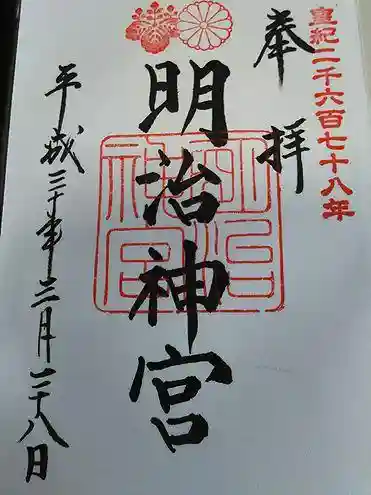 皇紀二千六百七十八年
奉拝
明治神宮
明治
神宮
平成三十年三月二十八日